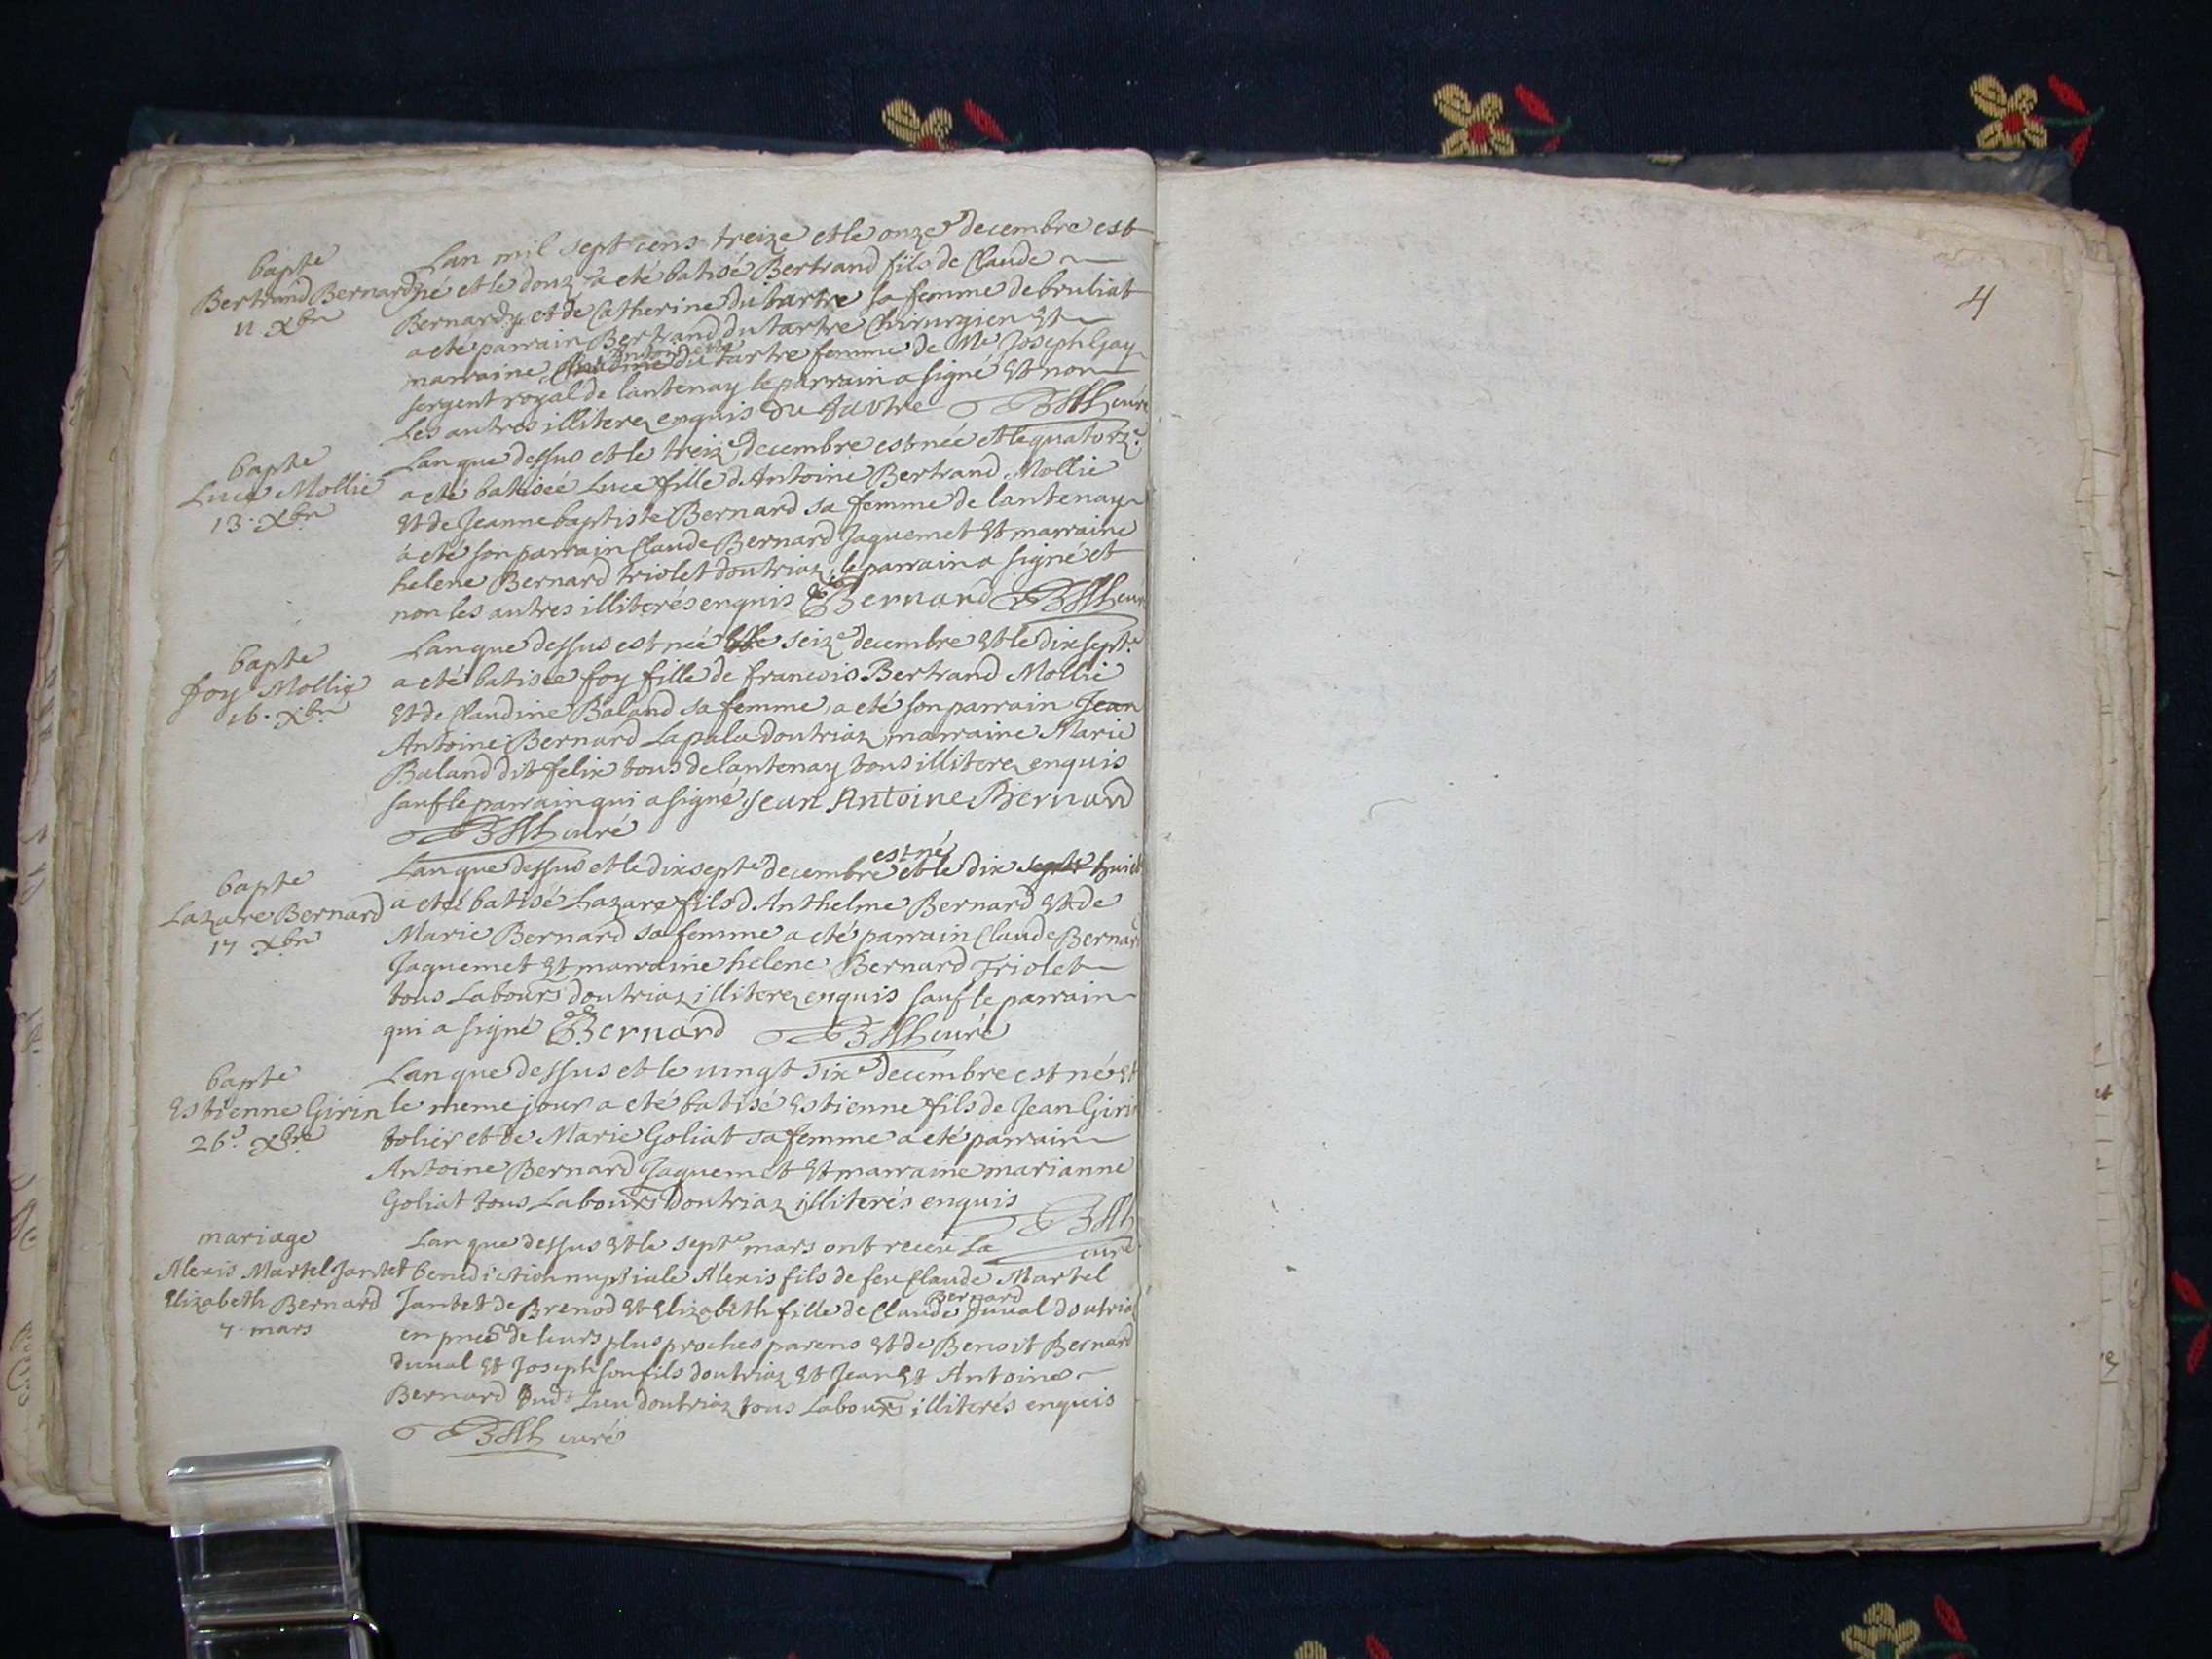 bapte
Bertrand Bernardy
11 Xbre
Lan mil sept cens treize et le onze decembre est
né et le douz.e a eté batisé Bertrand fils de Claude
Bernardy et de Catherine du tartre sa femme de bruliat
a eté parrain Bertrand du tartre Chirurgien Et
Antoinette
marraine du tartre femme de Me Joseph Gay
sergent royal de lantenay le parrain a signé Et non
Les autres illiterez enquis Du Tartre curé
bapte
Luce Mollie
13. Xbre
Lan que dessus et le treize decembre est née et le quatorze.
a eté batisée Luce fille d'Antoine Bertrand Mollie
Et de Jeanne baptiste Bernard sa femme de lantenay
a eté son parrain Claude Bernard Jaquemet Et marraine
helene Bernard triolet doutriaz, le parrain a signé et
non les autres illiterés enquis CBernard curé
bapte
foy Mollie
16. Xbre
Lan que dessus est née le seize decembre Et le dixsept.e
a eté batisée foy fille de francois Bertrand Mollie
Et de Claudine Baland sa femme, a eté son parrain Jean
Antoine Bernard Lapala doutriaz marraine Marie
Baland dit felix tous de lantenay tous illiterez enquis
sauf le parrain qui a signé, Jean Antoine Bernard
curé
bapte
Lazare Bernard
17 Xbre
est né
Lan que dessus et le dixsept.e decembre et le dix septe huict
a eté batisé Lazare fils d'Anthelme Bernard Et de
Marie Bernard sa femme a eté parrain Claude Bernard
Jaquemet Et marraine helene Bernard Triolet
tous Labours doutriaz illiterez enquis sauf le parrain
qui a signé CBernard curé
bapte
Estienne Girin
26.e Xbre
Lan que dessus et le vingt sixe decembre est né Et
le meme jour a eté batisé Estienne fils de Jean Girin
tolier et de Marie Goliat sa femme a eté parrain
Antoine Bernard Jaquemet Et marraine marianne
Goliat tous Labours Doutriaz illiterés enquis
curé
mariage
Alexis Martel Jantet
Elizabeth Bernard
7. mars
Lan que dessus Et le septe mars ont receu La
benediction nuptiale Alexis fils de feu Claude Martel
Bernard
Jantet de Brenod Et Elizabeth fille de Claude duval doutriaz
en pnce de leurs plus proches parens Et de Benoit Bernard
duval Et Joseph son fils doutriaz Et Jean Et Antoine
Bernard dud. Lieu doutriaz tous Labours illiterés enquis
curé
4